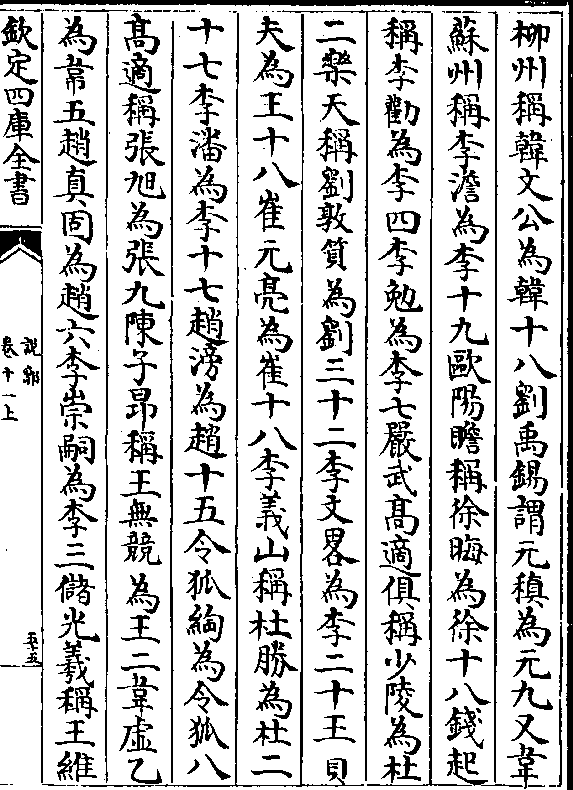 柳州稱韓文公為韓十八劉禹錫謂元稹為元九又韋
蘇州稱李澹為李十九歐陽瞻稱徐晦為徐十八錢起
稱李勸為李四李勉為李七嚴武髙適俱稱少陵為杜
二樂天稱劉敦質為劉三十二李文畧為李二十王貝
夫為王十八崔元亮為崔十八李義山稱杜勝為杜二
十七李潘為李十七趙滂為趙十五令狐綯為令狐八
髙適稱張旭為張九陳子昻稱王無競為王二韋虚乙
為韋五趙真固為趙六李崇嗣為李三儲光羲稱王維
欽定四庫全書
說郛
卷十一上
五十五